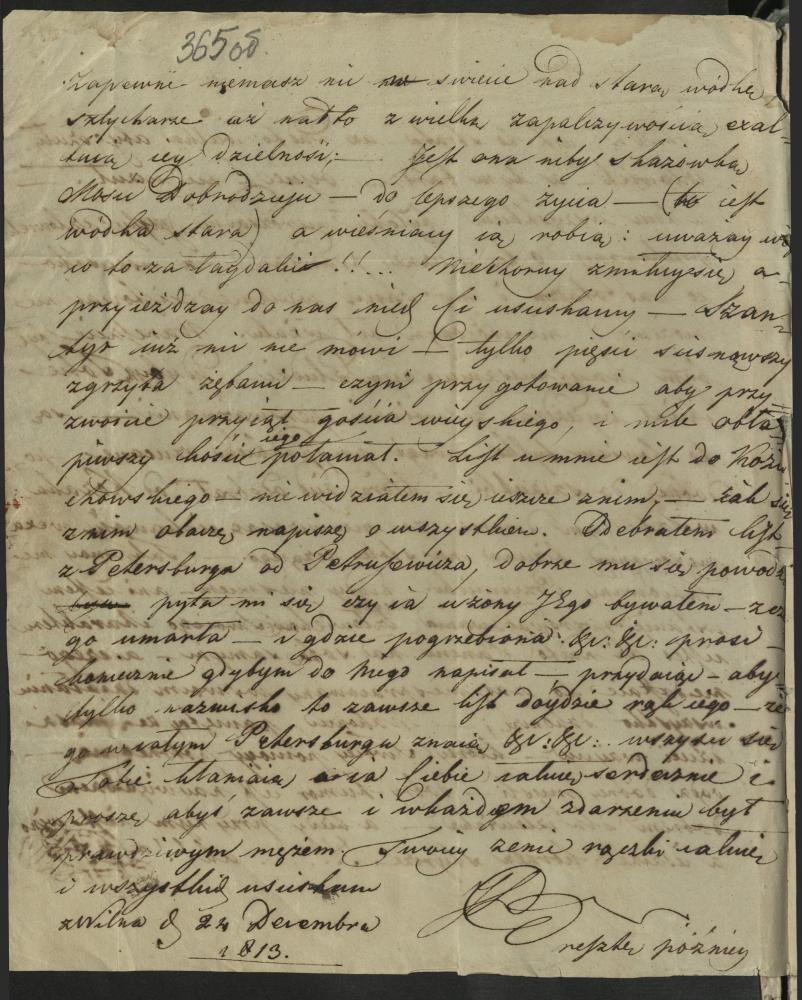 365 os.
Zapewne niemasz nic na swiecie nad starą wódkę
sztycharze aż nadto z wielką zapalczywością exal-
tują iey dzielność; Jest ona niby skazówką
Mosci Dobrodzieju — do lepszego życia — (to iest
wódka stara) a wieśniacy ią robią: uważay
co to za !!... zmiłuysię a-
przyieżdzay do nas niech Ci usciskamy — Szan-
tyr iuż nic nie mówi — tylko pięści scisnąwszy
zgrzyta zębami — czyni przygotowanie aby przy-
zwoicie przyiąt gościa wieyskiego, i mile obła-
piwszy kości iego połamał. List u mnie iest do Kozu-
chowskiego — nie widziałem się ieszcze znim, — iak się
znim obaczę napiszę o wszystkiem. Odebrałem list
z Petersburga od Petrusewicza, dobrze mu się powodzi
pyta mi się czy ia u żony JEgo bywałem — z cze-
go umarła — i gdzie pogrzebiona &c: &c: prosi
koniecznie gdybym do niego napisał — przydaiąc — aby
tylko nazwisko to zawsze list doydzie rąk iego — ze
go w całym Petersburgu znaią &c: &c: wszyscy się
Tobie kłaniaią a ia Ciebie całuię serdecznie i
proszę abyś zawsze i w każdem zdarzeniu był
prawdziwym mężem. Twoiey żenie rączki całuię
i wszystkich usciskam
z Wilna d 24 Decembra
1813.
resztę pózniey